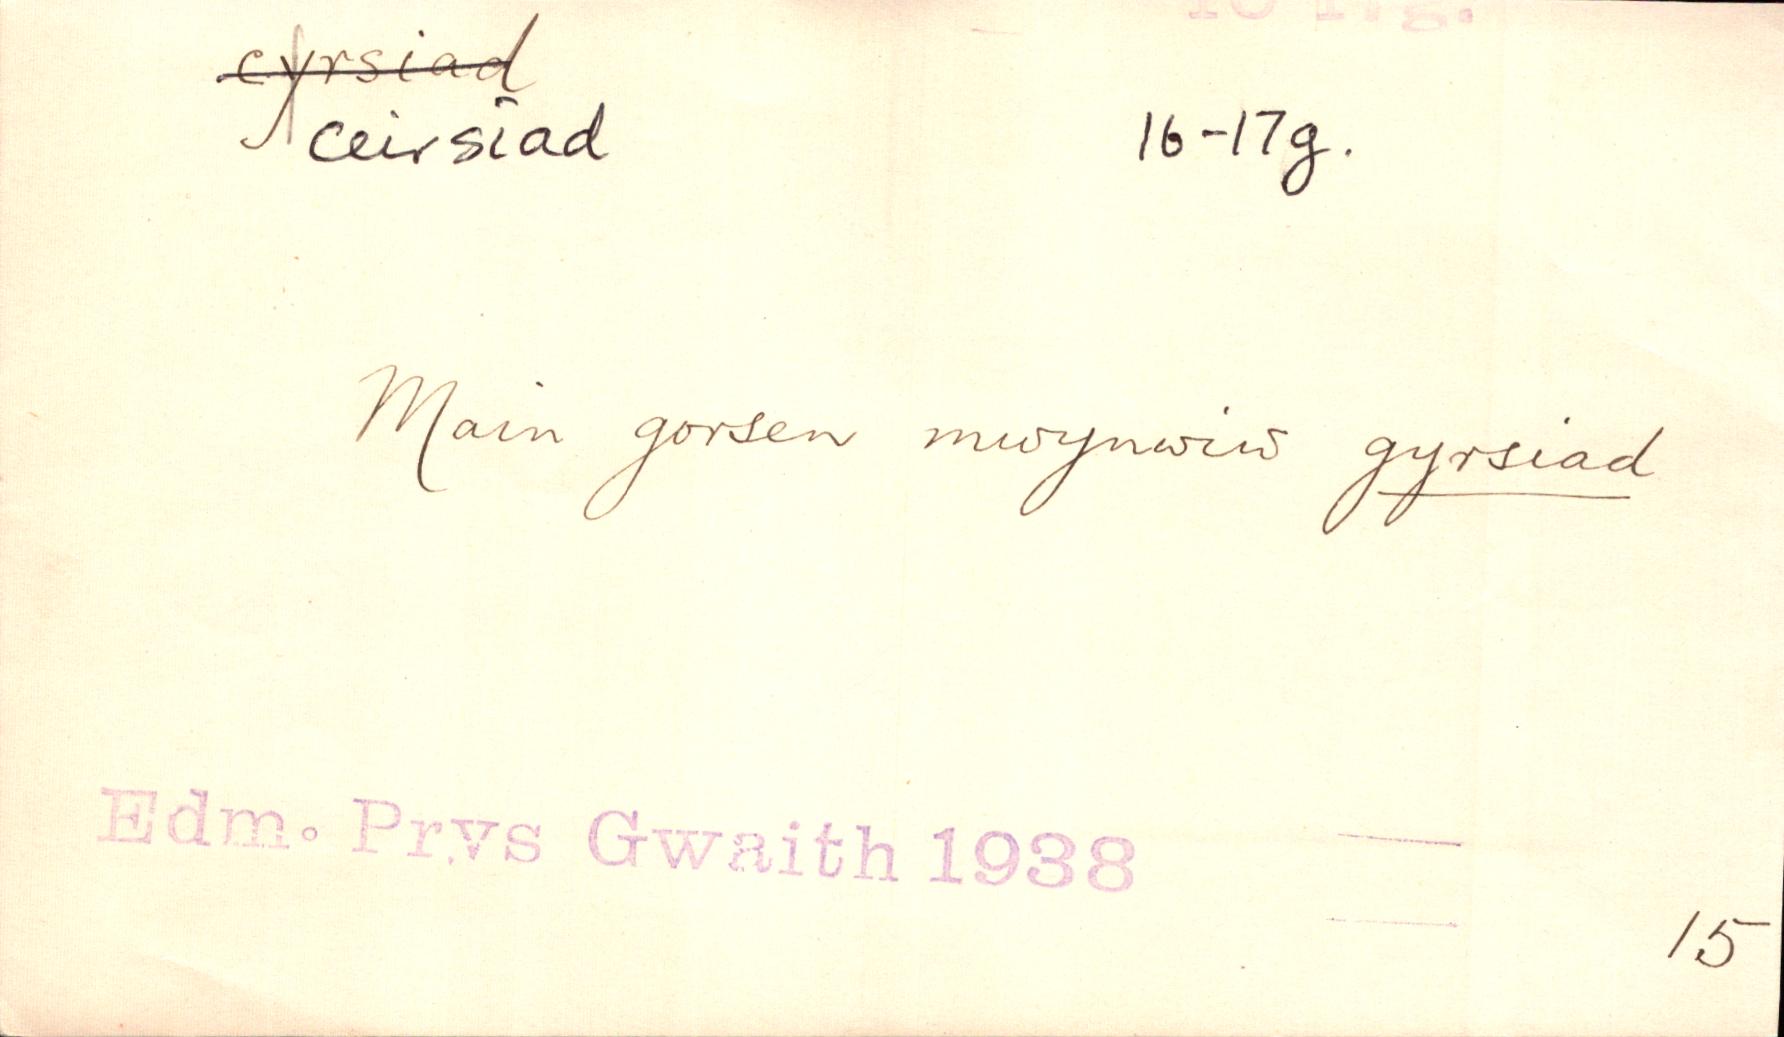 cyrsiad
ceirsiad 16-17g.
Main gorsen mwynwiw gyrsiad
Edm. Prys Gwaith 1938
15